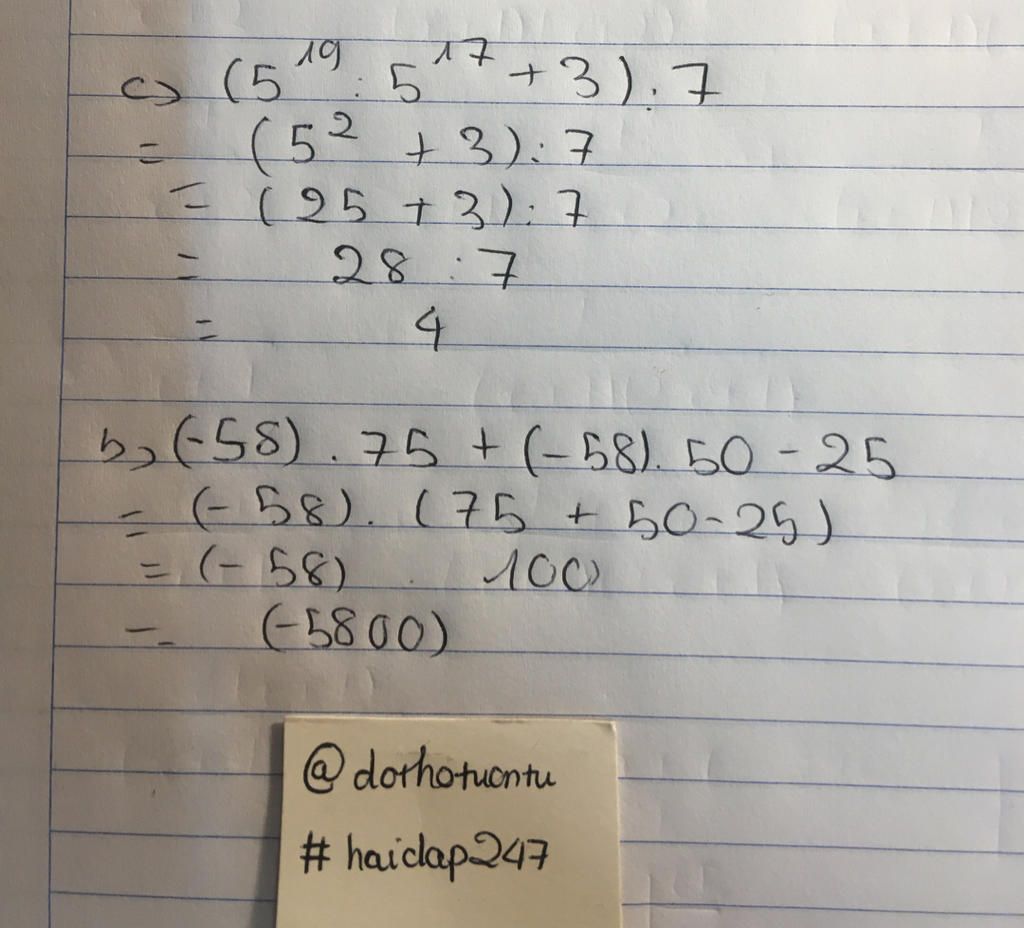 c) (5¹⁹ : 5¹⁷ + 3) : 7
= (5² + 3) : 7
= (25 + 3) : 7
= 28 : 7
= 4
b, (-58) . 75 + (-58). 50 - 25
= (-58). (75 + 50-25)
= (-58) . 100
= (-5800)
@dothotuontu
#hoidap247